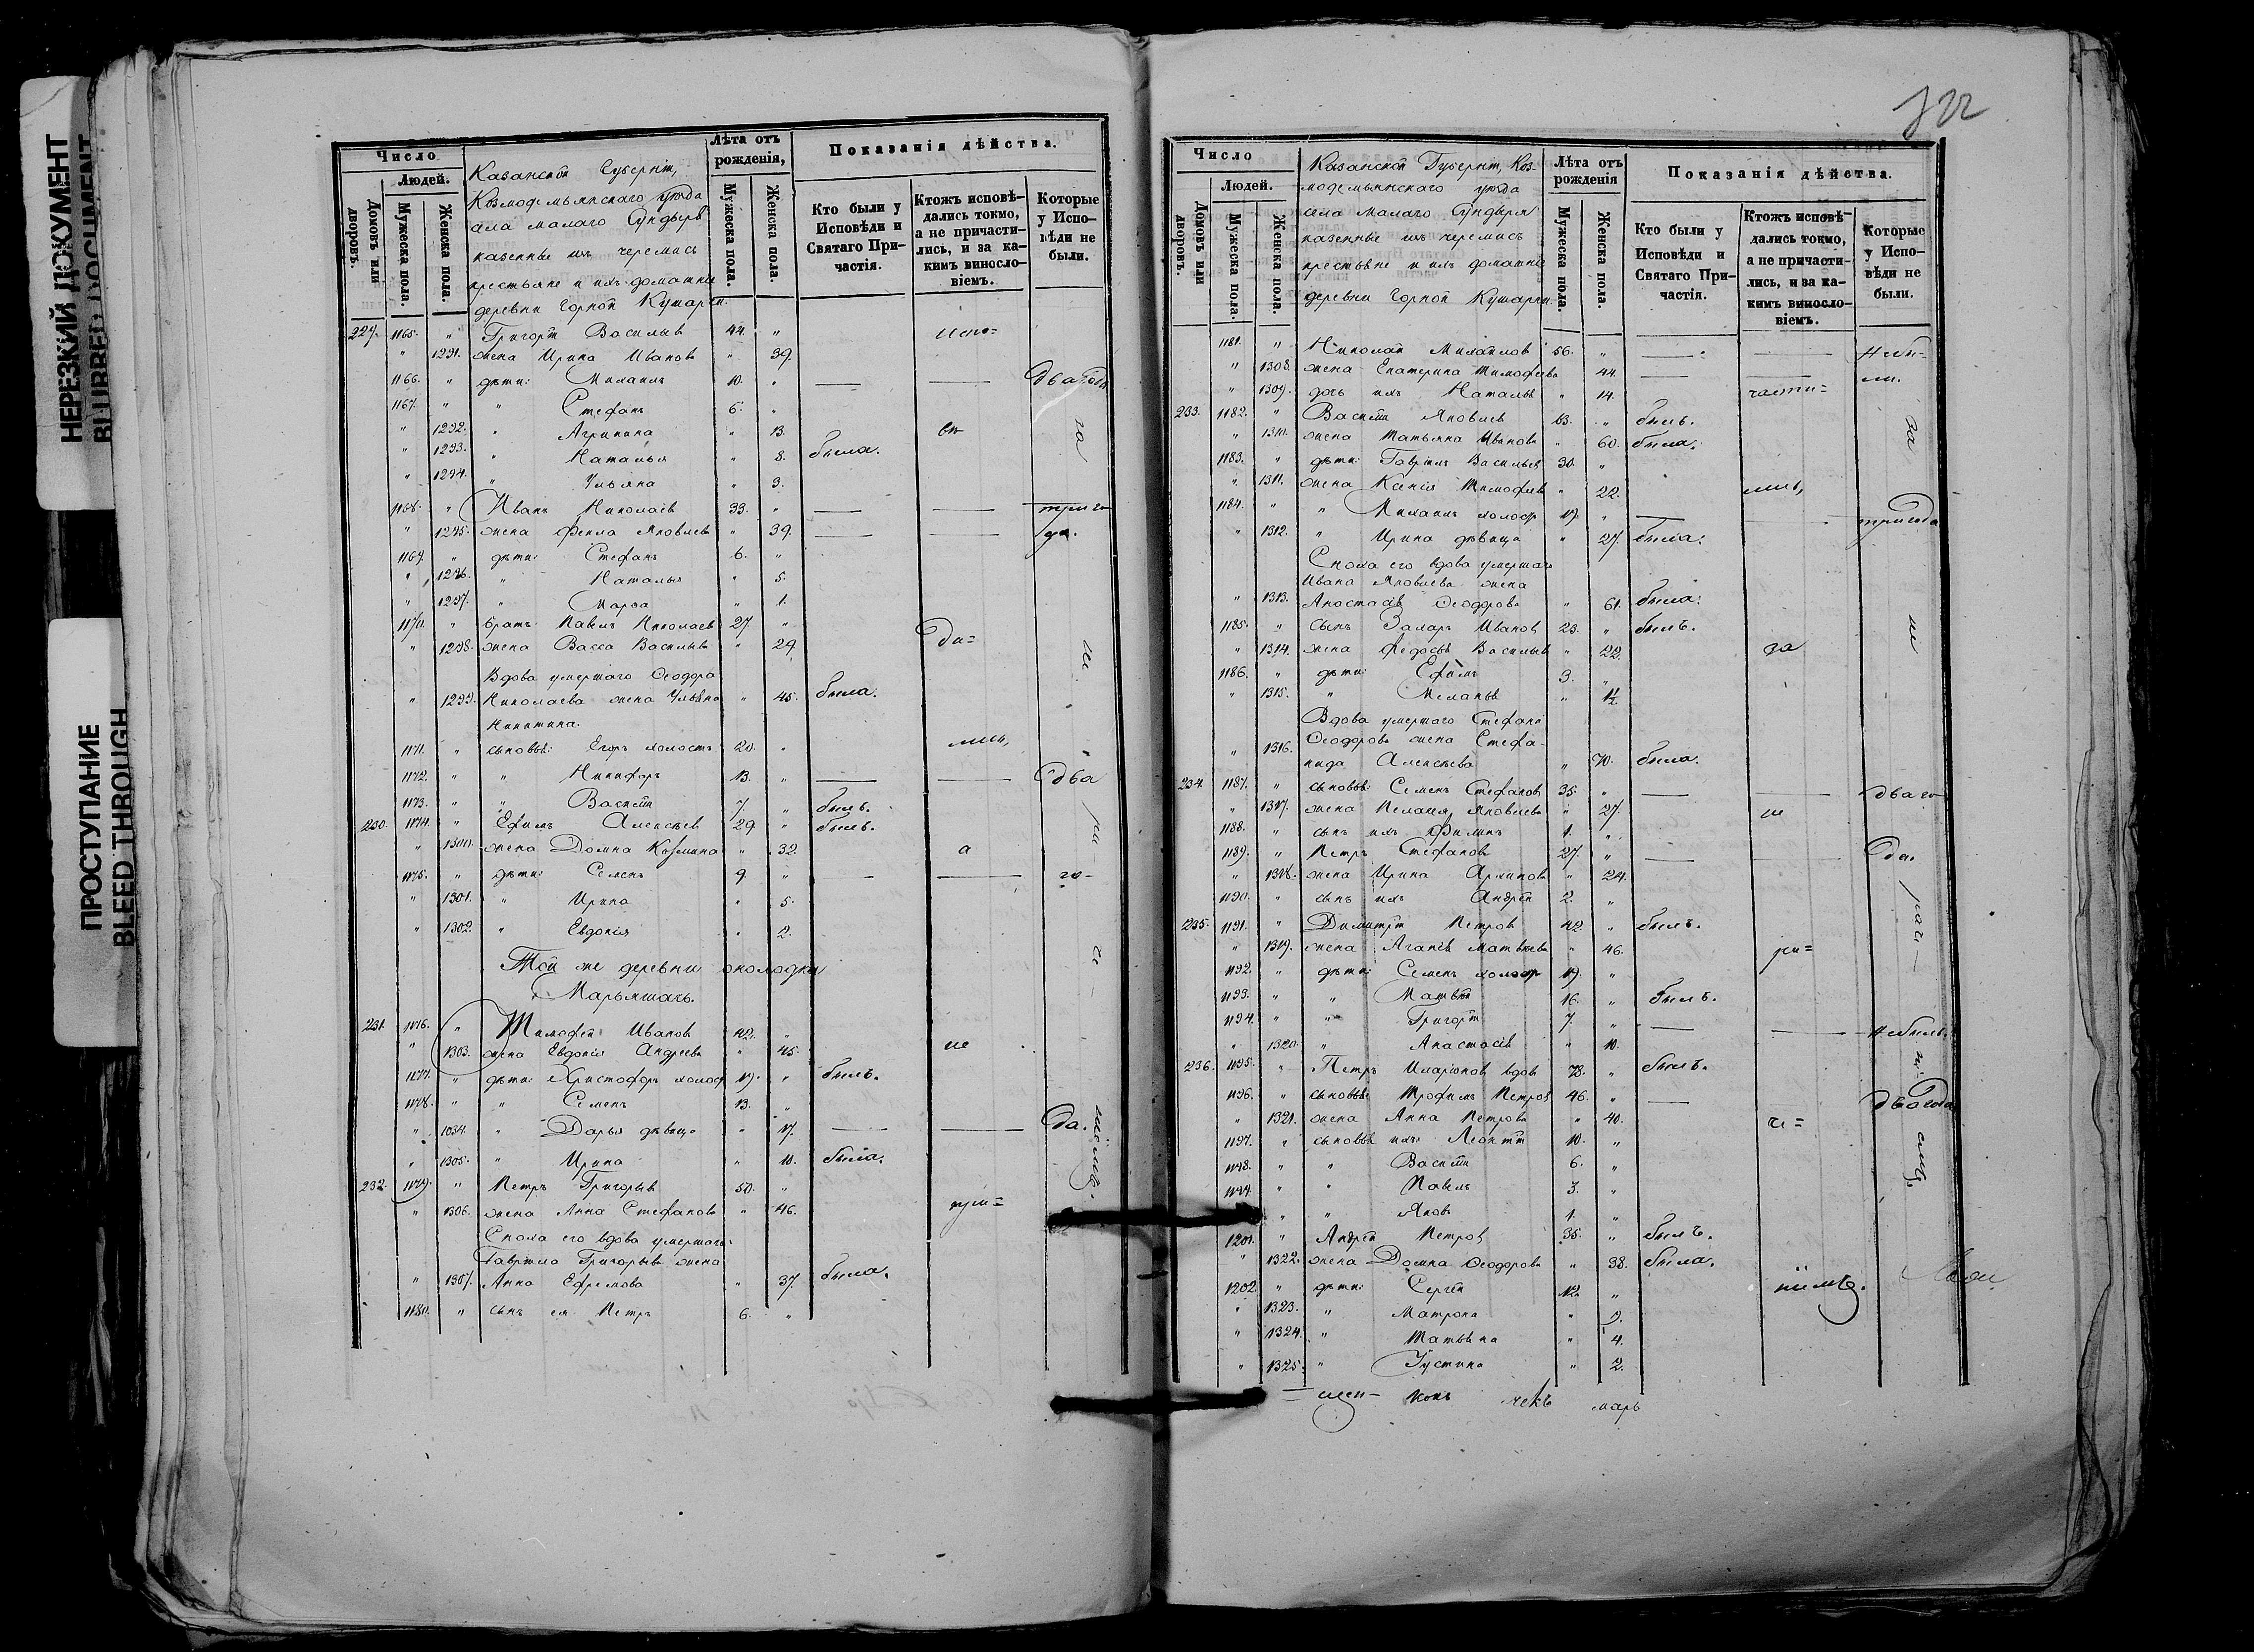 НЕРЕЗКИЙ ДОКУМЕНТ
BLURRED DOCUMENT
ПРОСТУПАНИЕ
BLEED THROUGH
Число
Людей.
Домовъ или дворовъ.
Мужеска пола.
Женска пола.
Казанской Губерніи,
Козмодемьянскаго уѣзда
села Малаго Сундыря
казенные изъ черемисъ
крестьяне и ихъ домашніе
деревни Горной Кушерги.
Лѣта отъ рожденія,
Мужеска пола.
Женска пола.
Показанія дѣйства.
Кто были у Исповѣди и Святаго Причастія.
Ктожъ исповѣдались токмо, а не причастились, и за какимъ винословіемъ.
Которые у Исповѣди не были.
1165. " Григорій Васильевъ 44. " испо=
" 1291. жена Ирина Иванова " 39.
1166. " дѣти: Михаилъ 10. " — — два года
1167. " " Стефанъ 6. "
" 1292. " Агрипина " 13.
" 1293. " Наталья " 8. была.
" 1294. " Ульяна " 3.
1168. " Иванъ Николаевъ 33. " — — три го
" 1295. жена Фекла Яковлева " 39. — — да.
1169. " дѣти: Стефанъ 6. "
" 1296. " Наталья " 5.
" 1297. " Марѳа " 1.
1170. " братъ Павелъ Николаевъ 27 "
" 1298. жена Васса Васильева " 29.
Вдова умершаго Ѳеодора
" 1299. Николаева жена Ульяна " 45. была.
Никитина.
1171. " сыновья: Егоръ холостъ 20. "
1172. " " Никифоръ 13. " — — два
1173. " " Василій 7. " былъ.
230. 1174. " Ефимъ Алексѣевъ 29 " былъ.
" 1300. жена Домна Козмина " 32. а
1175. " дѣти: Семенъ 9 " — — го-
" 1301. " Ирина " 5.
" 1302. " Евдокія " 2.
Той же деревни околодка
231. 1176. " Тимофей Ивановъ 42. "
" 1303. жена Евдокія Андреева " 45. не
1177. " дѣти: Христофоръ холост 19. " былъ.
1178. " " Семенъ 13. "
" 1034. " Дарья дѣвица " 17. — — да.
" 1305. " Ирина " 10. была.
232. 1179. " Петръ Григорьевъ 50. "
" 1306. жена Анна Стефанова " 46. при=
Сноха его вдова умершаго
Гавріила Григорьева жена
" 1307. Анна Ефремова " 37. была.
1180. " сынъ ея Петръ 6. "
Число
Людей.
Домовъ или дворовъ.
Мужеска пола.
Женска пола.
Казанской Губерніи, Коз-
модемьянскаго уѣзда
села Малаго Сундыря
казенные изъ черемисъ
крестьяне и ихъ домашніе
деревни Горной Кушерги.
Лѣта отъ рожденія
Мужеска пола.
Женска пола.
Показанія дѣйства.
Кто были у Исповѣди и Святаго Причастія.
Ктожъ исповѣдались токмо, а не причастились, и за какимъ винословіемъ.
Которые у Исповѣди не были.
1181. " Николай Михайловъ 56. " — — не бы-
" 1308. жена Екатерина Тимофеева " 44. — — ли.
" 1309. дочь ихъ Наталья " 14. части=
233. 1182. " Василій Яковлевъ 63. " былъ.
" 1310. жена Татьяна Иванова " 60. была.
1183. " дѣти: Гавріилъ Васильевъ 30. "
" 1311. жена Ксенія Тимофеева " 22.
1184. " " Михаилъ холост 19. " — — три года
" 1312. " Ирина дѣвица " 27. была.
Сноха его вдова умершаго
Ивана Яковлева жена
" 1313. Анастасія Ѳеодорова " 61. была.
1185. " сынъ Захаръ Ивановъ 23. " былъ.
" 1314. жена Федосья Васильева " 22. за
1186. " дѣти: Ефимъ 3. "
" 1315. " Меланья " ½
Вдова умершаго Стефана
" 1316. Ѳеодорова жена Стефа-
нида Алексѣева " 70. была.
234. 1187. " сыновья: Семенъ Стефановъ 35. " — — два го
" 1317. жена Пелагея Яковлева " 27. не
1188. " сынъ ихъ Филипъ 1. "
1189. " Петръ Стефановъ 27. " — — да.
" 1318. жена Ирина Архипова " 24.
1190. " сынъ ихъ Андрей 2. "
235. 1191. " Димитрій Петровъ 42. " былъ.
" 1319. жена Агапія Матвѣева " 46.
1192. " дѣти: Семенъ холост 19. "
1193. " " Матвѣй 16. " былъ.
1194. " " Григорій 7. " — — не былъ.
" 1320. " Анастасія " 10.
236. 1195. " Петръ Иларіоновъ вдов 78. " былъ.
1196. " сыновья: Трофимъ Петровъ 46. " — два года
" 1321. жена Анна Петрова " 40.
1197. " сыновья ихъ: Леонтій 10. "
1198. " " Василій 6. "
" " Павелъ 3. "
" " Яковъ 1. "
1201. " Андрей Петровъ 35. " былъ.
" 1322. жена Домна Ѳеодорова " 38. была.
1202. " дѣти: Сергей 12. "
" 1323. " Матрона " 9.
" 1324. " Татьяна " 4.
" 1325. " Іустина " 2.